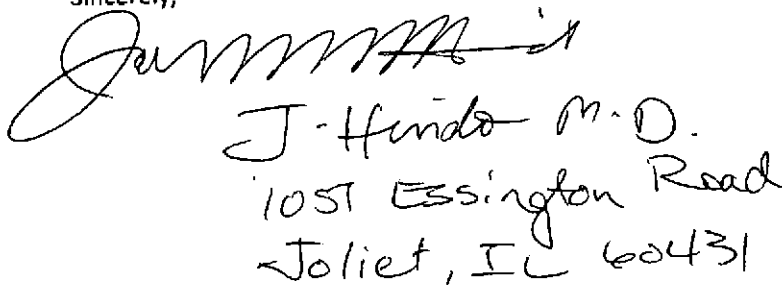 Sincerely,
J. Hindo M.D.
1051 Essington Road
Joliet, IL 60431